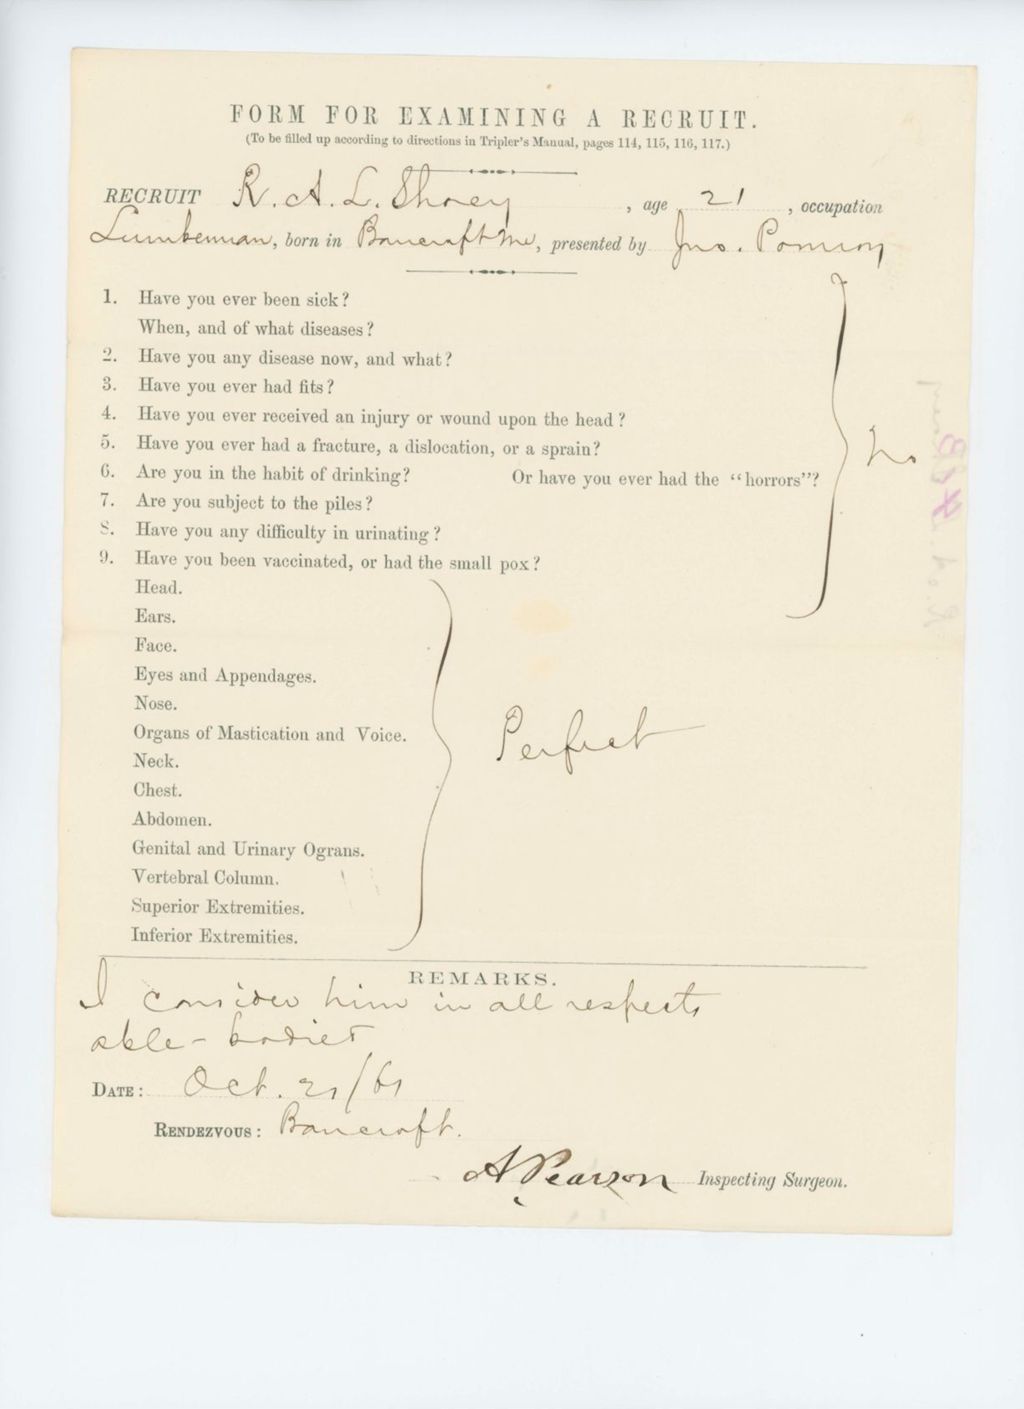 FORM FOR EXAMINING A RECRUIT.
(To be filled up according to directions in Tripler's Manual, pages 114, 115, 116, 117.)
RECRUIT R. A. L. Shorey, age 21, occupation
Lumberman, born in Bancroft Me, presented by Jno. Pomroy
1. Have you ever been sick?
When, and of what diseases?
2. Have you any disease now, and what?
3. Have you ever had fits?
4. Have you ever received an injury or wound upon the head?
5. Have you ever had a fracture, a dislocation, or a sprain?
6. Are you in the habit of drinking? Or have you ever had the "horrors"?
7. Are you subject to the piles?
8. Have you any difficulty in urinating?
9. Have you been vaccinated, or had the small pox?
No
Head.
Ears.
Face.
Eyes and Appendages.
Nose.
Organs of Mastication and Voice.
Neck.
Chest.
Abdomen.
Genital and Urinary Ograns.
Vertebral Column.
Superior Extremities.
Inferior Extremities.
Perfect
REMARKS.
I consider him in all respects
able-bodied
DATE: Oct. 21/61
RENDEZVOUS: Bancroft.
A Pearson Inspecting Surgeon.